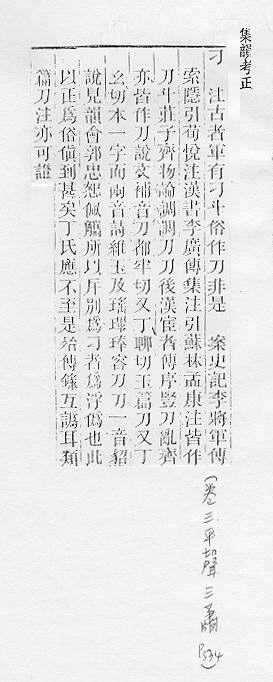 集韻考正
刁　注古者軍有刁斗俗作刀非是　案史記李將軍傳
索隱引荀悅注漢書李廣傳集注引蘇林孟康注皆作
刀斗莊子齊物論調調刀刀後漢宦者傳序豎刀亂齊
亦皆作刀說文補音刀都牢切又丁聊切玉篇刀又丁
幺切本一字而兩音詩維玉及瑤鞞琫容刀刀一音貂
說見韻會郭忠恕佩觿所以斥別爲刁者爲浮僞也此
以正爲俗傎到甚矣丁氏應不至是殆傳錄互譌耳類
篇刀注亦可證
(卷三平聲三蕭 P534)